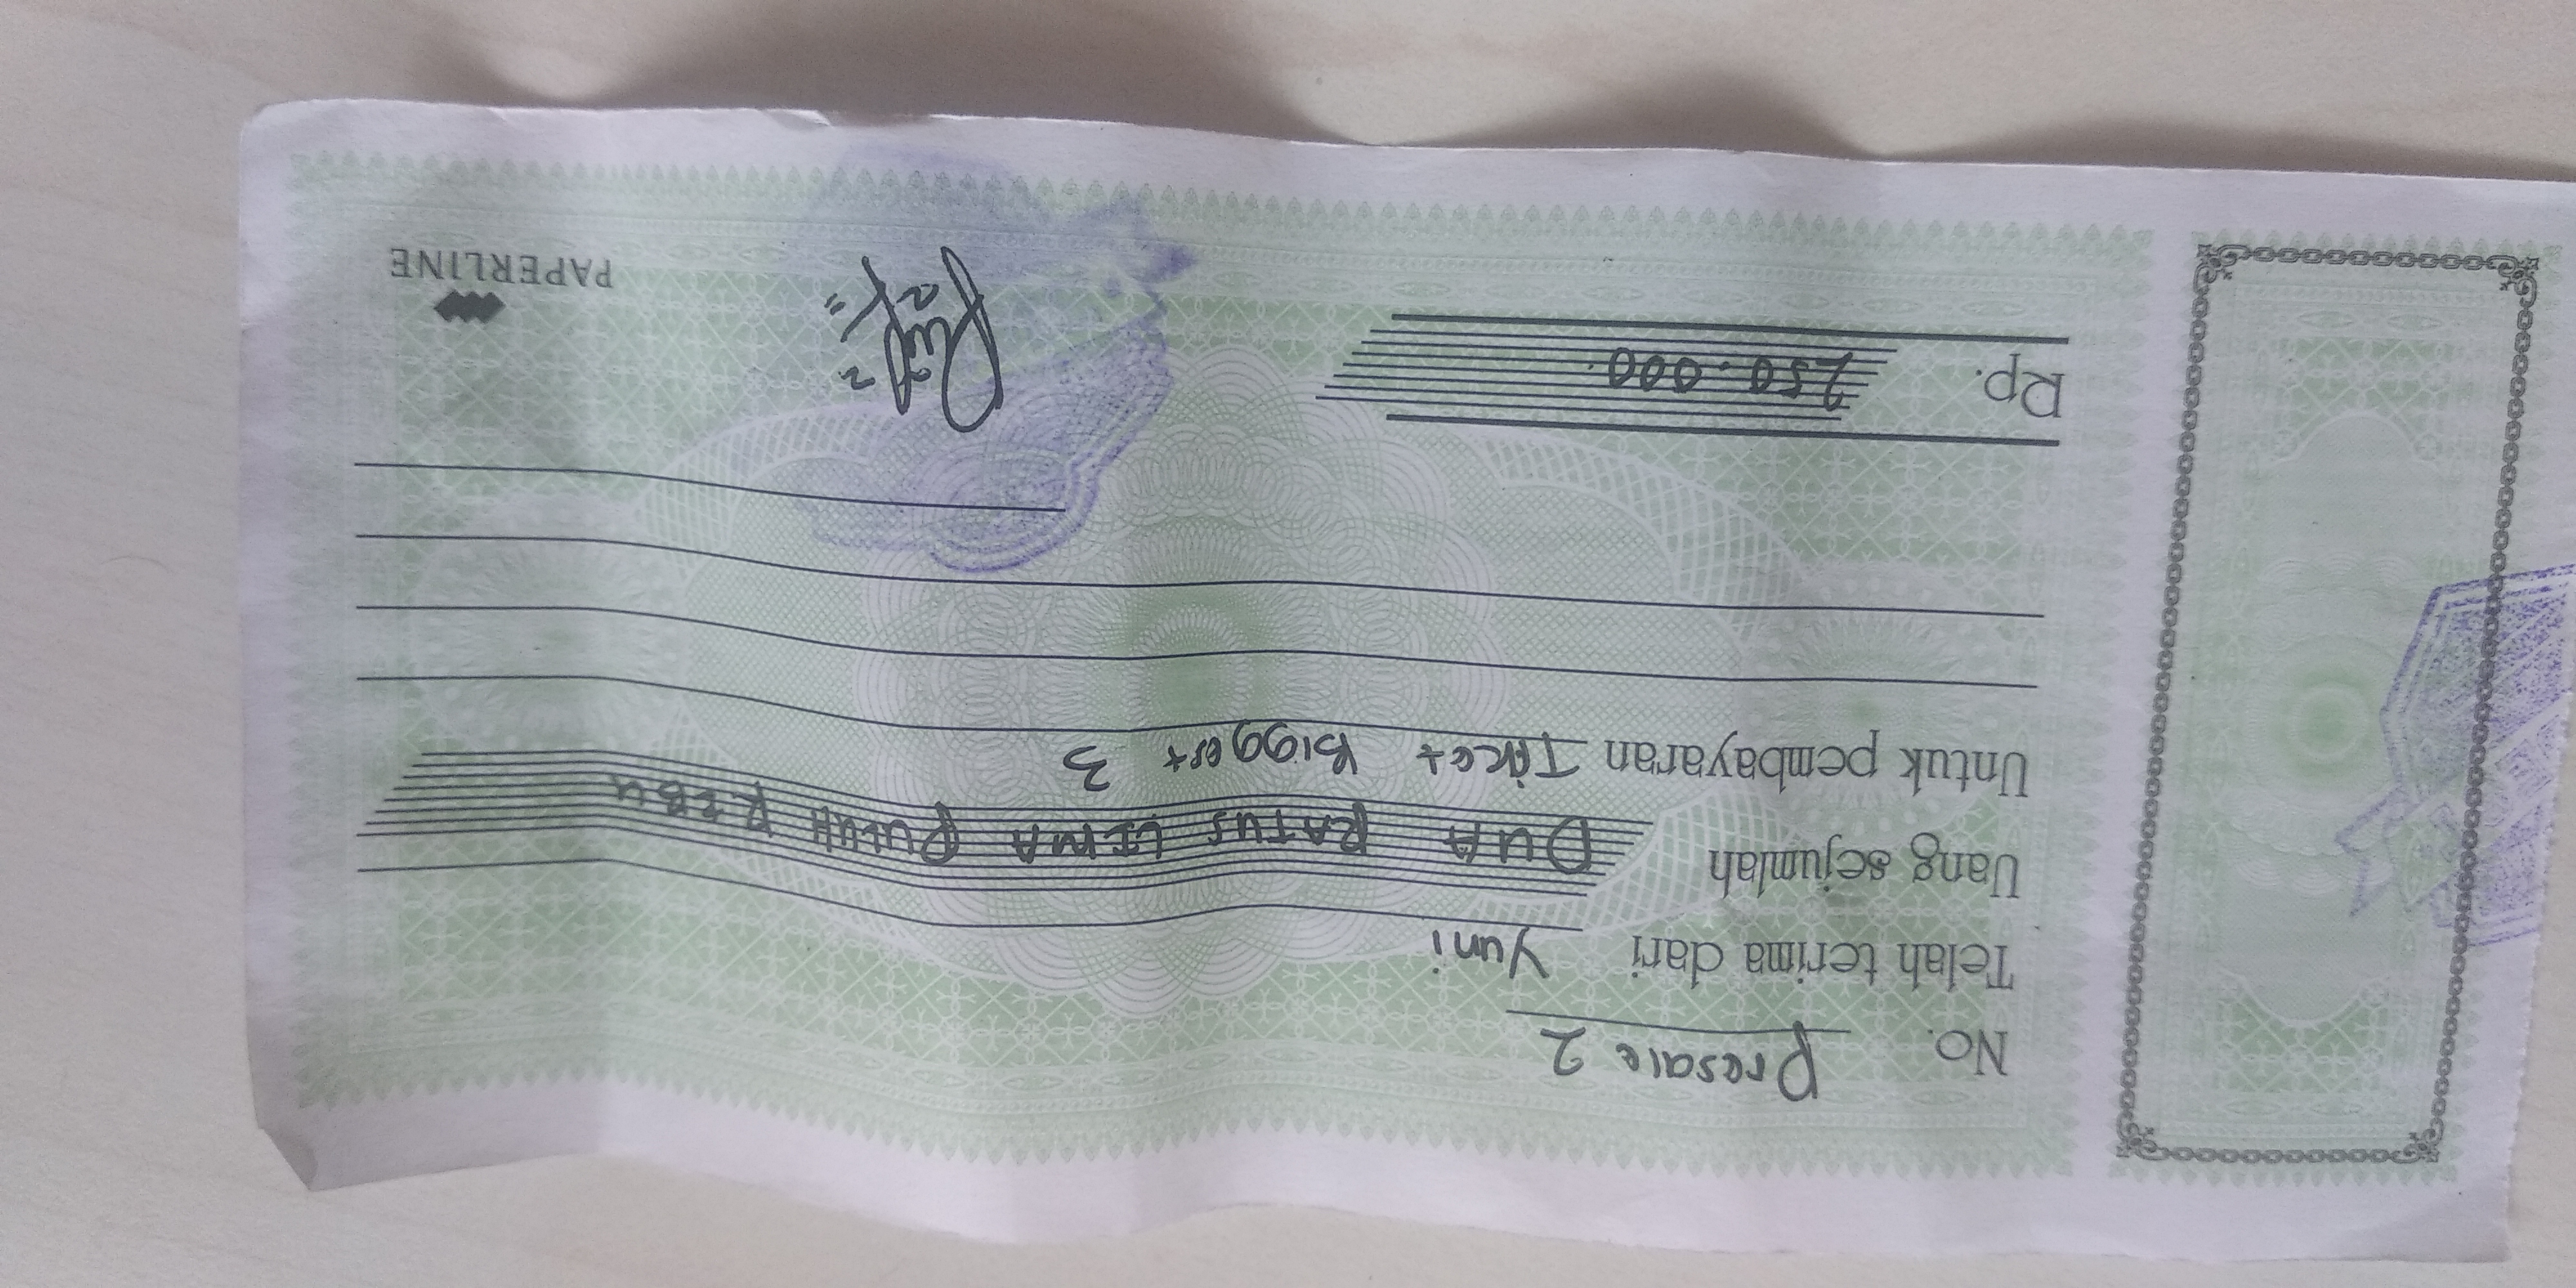 No. Presale 2
Telah terima dari Yuni
Uang sejumlah DUA RATUS LIMA PULUH RIBU
Untuk pembayaran Ticet Biggest 3
Rp. 250.000
PAPERLINE